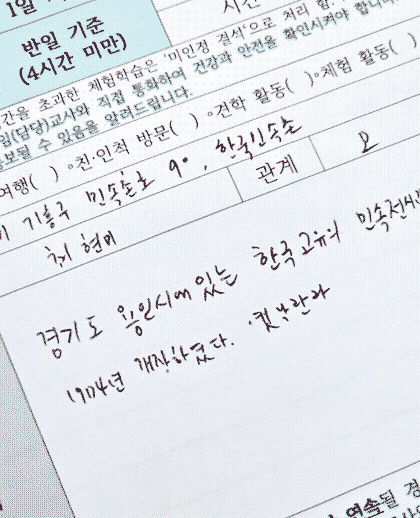 1일 기
시간
반일 기준
(4시간 미만)
간을 초과한 체험학습은 '미인정 결석'으로 처리
임(담당)교사와 직접 통화하여 건강과 안전을 확인시켜야 합니다
통보될 수 있음을 알려드립니다.
여행( ) ◦친·인척 방문( ) ◦견학 활동( )◦체험 활동( )
기흥구 민속촌로 90, 한국민속촌
최현미 관계 모
경기도 용인시에 있는 한국 고유의 민속전시
1974년 개장하였다.
연속될 경